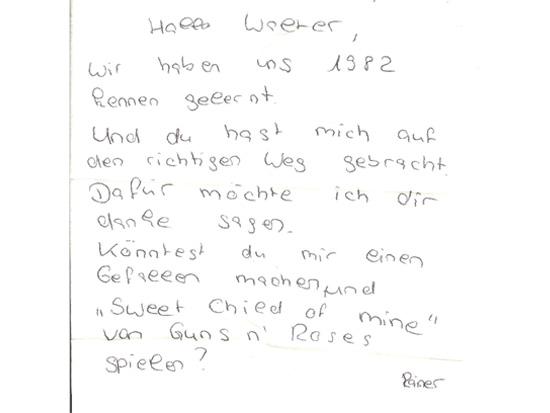 Hallo Walter,
Wir haben uns 1982
kennen gelernt.
Und du hast mich auf
den richtigen Weg gebracht.
Dafür möchte ich dir
danke sagen.
Könntest du mir einen
Gefallen machen, und
„Sweet Child of mine“
von Guns n' Roses
spielen?
Rainer